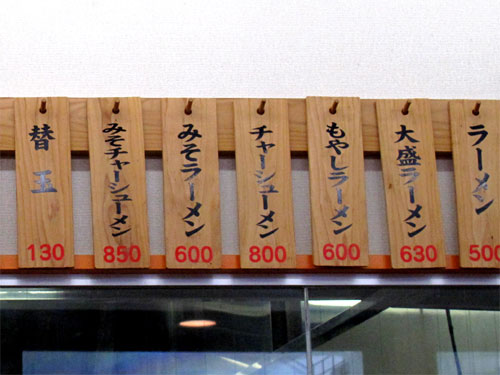 替玉
130
みそチャーシューメン
850
みそラーメン
600
チャーシューメン
800
もやしラーメン
600
大盛ラーメン
630
ラーメン
500